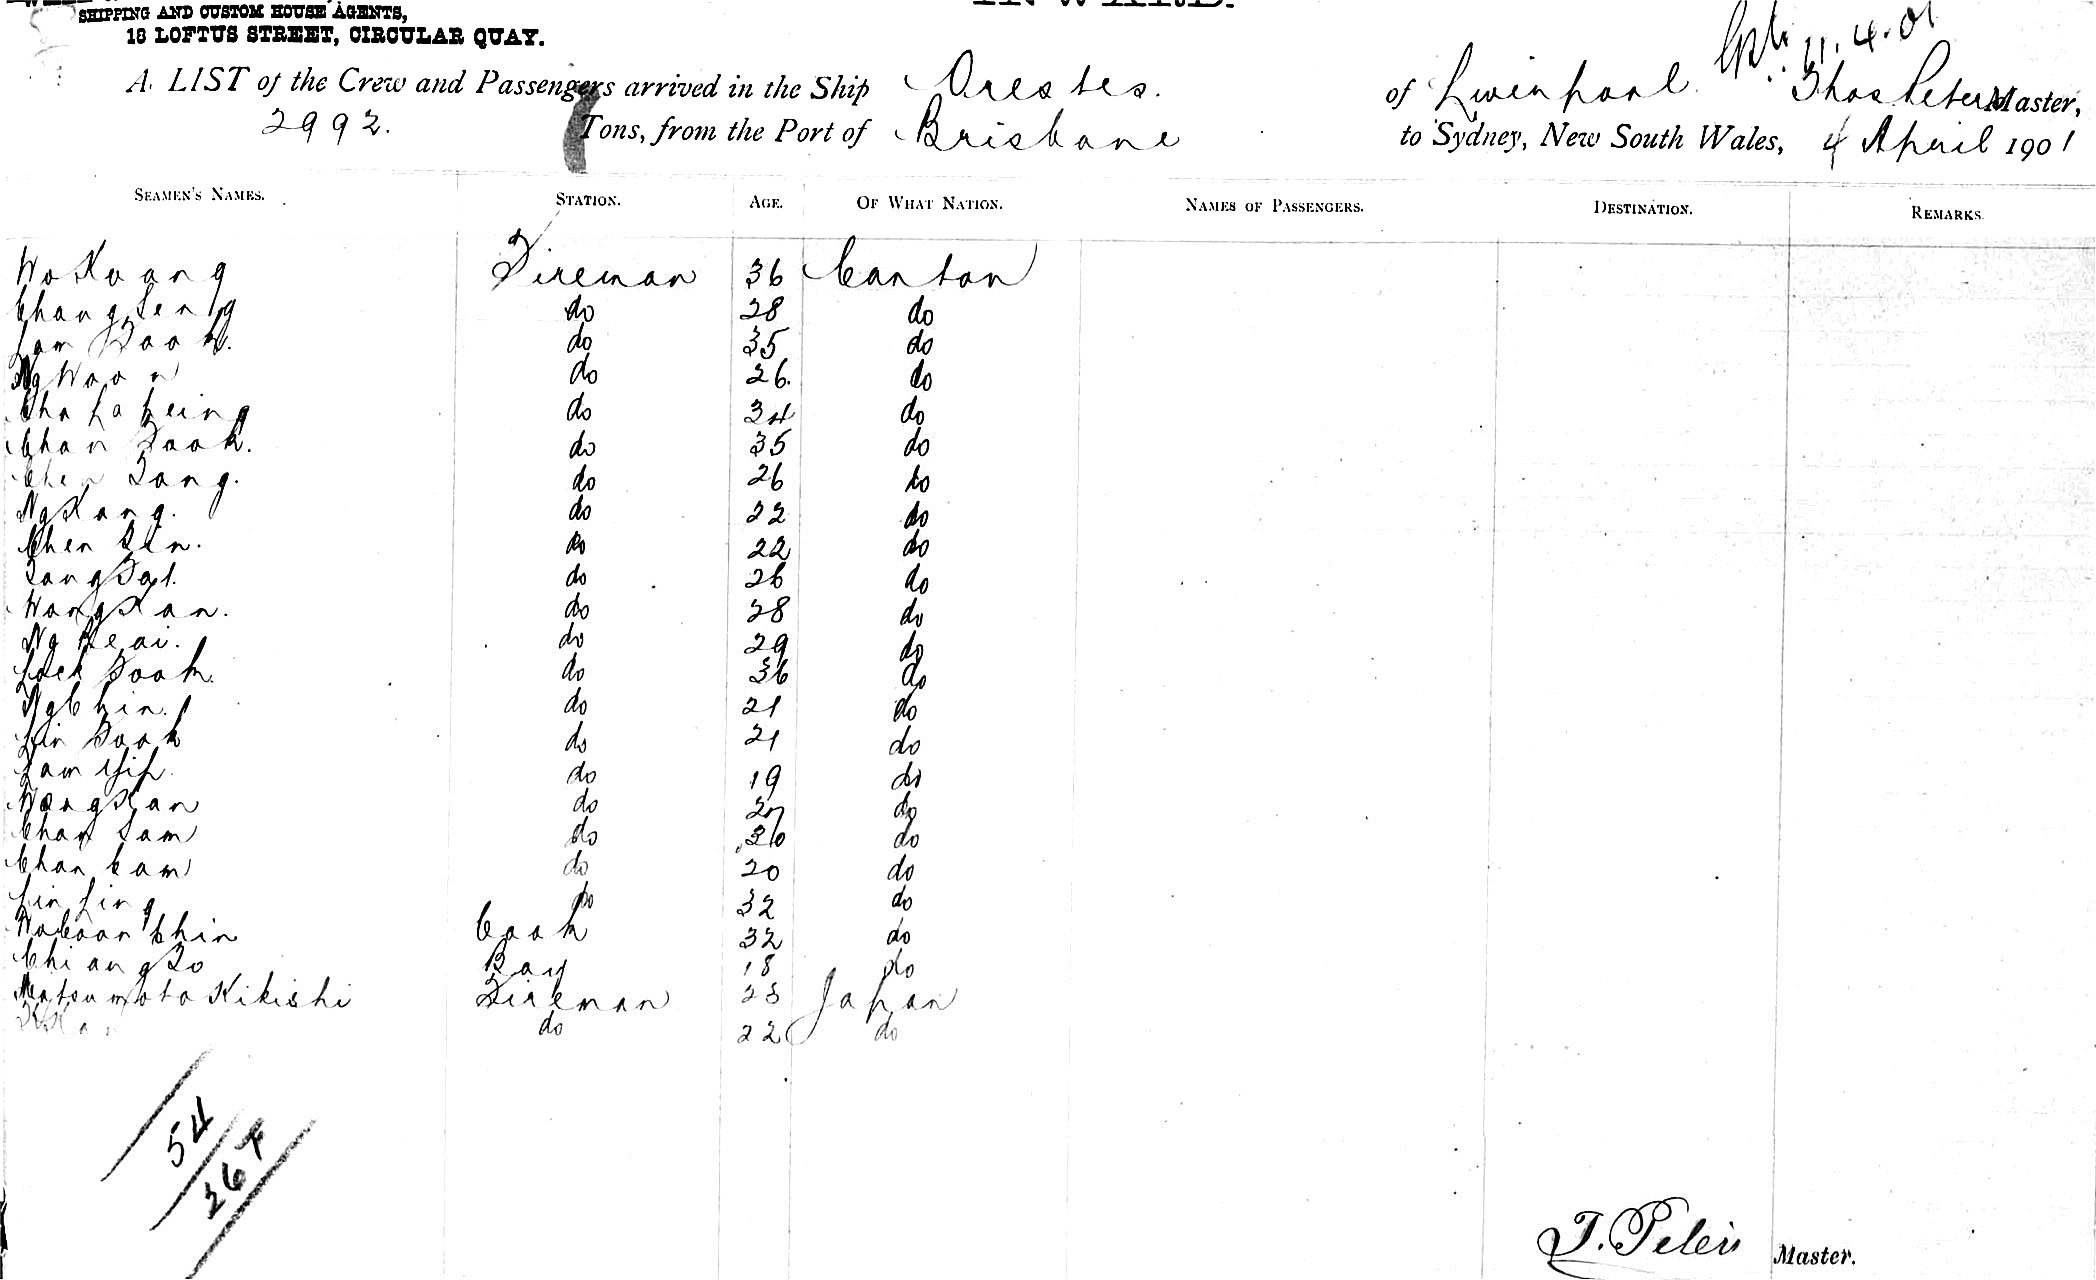 SHIPPING AND CUSTOM HOUSE AGENTS,
18 LOFTUS STREET, CIRCULAR QUAY.
INWARD.
11.4.01
A LIST of the Crew and Passengers arrived in the Ship Orestes. of Liverpool Thos Peters Master,
2992. Tons, from the Port of Brisbane to Sydney, New South Wales, 4 April 1901
SEAMEN'S NAMES. STATION. AGE. OF WHAT NATION. NAMES OF PASSENGERS. DESTINATION. REMARKS.
Wo Kwang Fireman 36 Canton
Chang Seng do 28 do
Lam Sook. do 35 do
Ng Woon do 26. do
Cha Fo Keing do 34 do
Chan Sook. do 35 do
Chen Song. do 26 do
Ng Kang. do 22 do
Chen Sin. do 22 do
do 26 do
Wong Kan. do 28 do
Ng Keai. do 29 do
Sook. do 36 do
Ng Chin. do 21 do
Lin Sook do 21 do
Lam Yip. do 19 do
Wong Kan do 27 do
Chan Sam do 30 do
Chan Cam do 20 do
Lin Ling do 32 do
Chin Cook 32 do
Chiang So Boy 18 do
Matsumoto Kikishi Fireman 23 Japan
do 22 do
54
264
T. Peters Master.